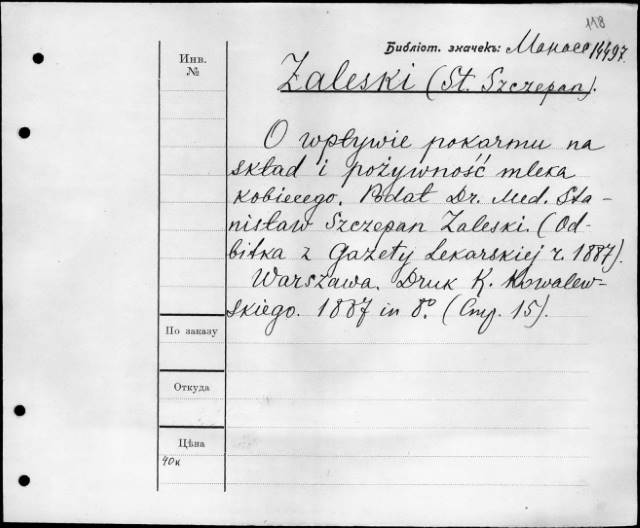 118
Библіот. значекъ:
14497.
Инв.
№
Zaleski (St. Szczepan).
O wpływie pokarmu na
skład i pożywność mleka
kobiecego. Podał Dr. Med. Sta-
nisław Szczepan Zaleski. (Od-
bitka z Gazety Lekarskiej r. 1887).
Warszawa. Druk K. Kowalew-
skiego. 1887 in 8º. (Стр. 15).
По заказу
Откуда
Цѣна
40к